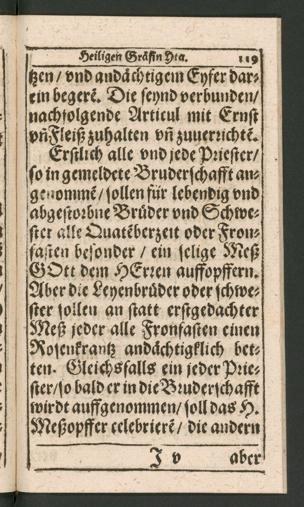 Heiligen Gräfin Ita. 119
tzen / vnd andächtigem Eyfer dar-
ein begerẽ. Die seynd verbunden/
nachfolgende Articul mit Ernst
vñ Fleiß zuhalten vñ zuuerrichtẽ.
Erstlich alle vnd jede Priester/
so in gemeldete Bruderschafft an-
genommẽ / sollen für lebendig vnd
abgestorbne Brüder vnd Schwe-
ster alle Quatẽberzeit oder Fron-
fasten besonder / ein selige Meß
GOtt dem HErren auffopffern.
Aber die Leyenbrüder oder schwe-
ster sollen an statt erstgedachter
Meß jeder alle Fronfasten einen
Rosenkrantz andächtigklich bet-
ten. Gleichsfalls ein jeder Prie-
ster/ so bald er in die Bruderschafft
wirdt auffgenommen/ soll das H.
Meßopffer celebrierẽ / die andern
J v aber